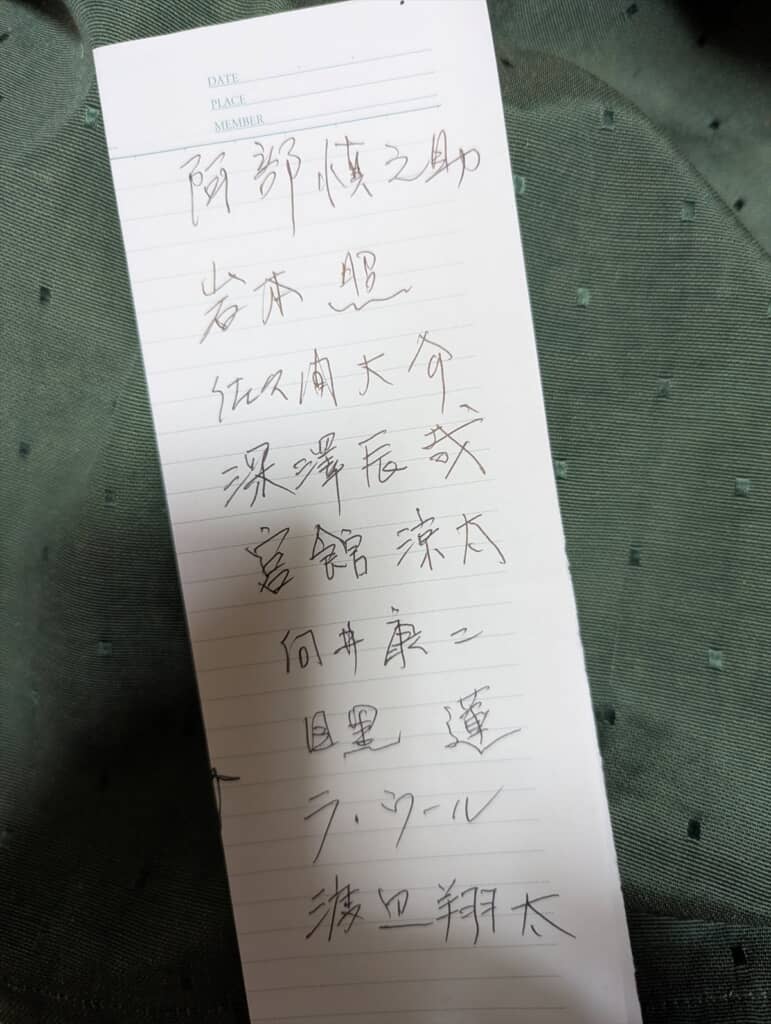 DATE
PLACE
MEMBER
阿部慎之助
岩本 照
佐久間大介
深澤辰哉
宮館涼太
向井康二
目黒 蓮
ラ・ウール
渡辺翔太